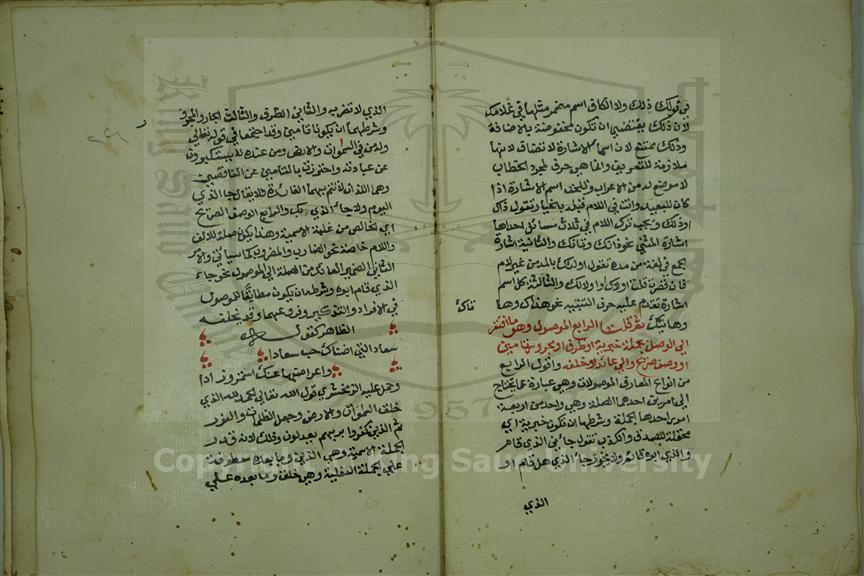 في قولك ذلك ولا الكاف اسم مضمر مثلها في غلامك
لان ذلك يقتضي ان تكون مخفوضة بالاضافة
وذلك ممتنع لان اسماء الاشارة لا تضاف لانها
ملازمة للتعريف وانما هي حرف لمجرد الخطاب
لا موضع له من الاعراب وتلحق اسم الاشارة اذا
كان للبعيد وانت في اللام قبله بالخيار فتقول ذاك
او ذلك ويجب ترك اللام في ثلاث مسائل احداها
اشارة المثنى نحو ذانك وتانك والثانية اشارة
الجمع في لغة من مده تقول اولئك بالمد من غير لام
فان قصرت قلت اولاك او اولالك والثالثة كل اسم
اشارة تقدم عليه حرف التنبيه نحو هذاك وها
تاك
وهاتيك ثم قلت الرابع الموصول وهو ما افتقر
الى الوصل بجملة خبرية او ظرف او مجرور تامين
او وصف صريح والى عائد او خلفه واقول الرابع
من انواع المعارف الموصولات وهي عبارة عما يحتاج
الى امرين احدهما الصلة وهي واحد من اربعة
امور احدها الجملة وشرطها ان تكون خبرية اي
محتملة للصدق والكذب تقول جاءني الذي قام
والذي ابوه قائم ولا يجوز جاء الذي هل قام او
الذي
الذي لا تضربه والثاني الظرف والثالث الجار والمجرور
وشرطهما ان يكونا تامين وقد اجتمعا في قوله تعالى
وله من في السموات والارض ومن عنده لا يستكبرون
عن عبادته واحترزت بالتامين عن الناقصين
وهما اللذان لا تتم بهما الفائدة فلا يقال جا الذي
اليوم ولا جاء الذي بك والرابع الوصف الصريح
اي الخالص من غلبة الاسمية وهذا يكون صلة للالف
واللام خاصة نحو الضارب والمضروب كما سياتي والامر
الثاني الضمير العائد من الصلة الى الموصول نحو جاء
الذي قام ابوه وشرطه ان يكون مطابقا للموصول
في الافراد والتذكير وفروعهما وقد يخلفه
الظاهر كقوله
سعاد التي اضناك حب سعادا
واعراضها عنك استمر وزادا
وحمل عليه الزمخشري قول الله تعالى الحمد لله الذي
خلق السموات والارض وجعل الظلمات والنور
ثم الذين كفروا بربهم يعدلون وذلك لانه قدر
الجملة الاسمية وهي الذين وما بعده معطوفة
على الجملة الفعلية وهي خلق وما بعده على
Copyright © King Saud University
1957